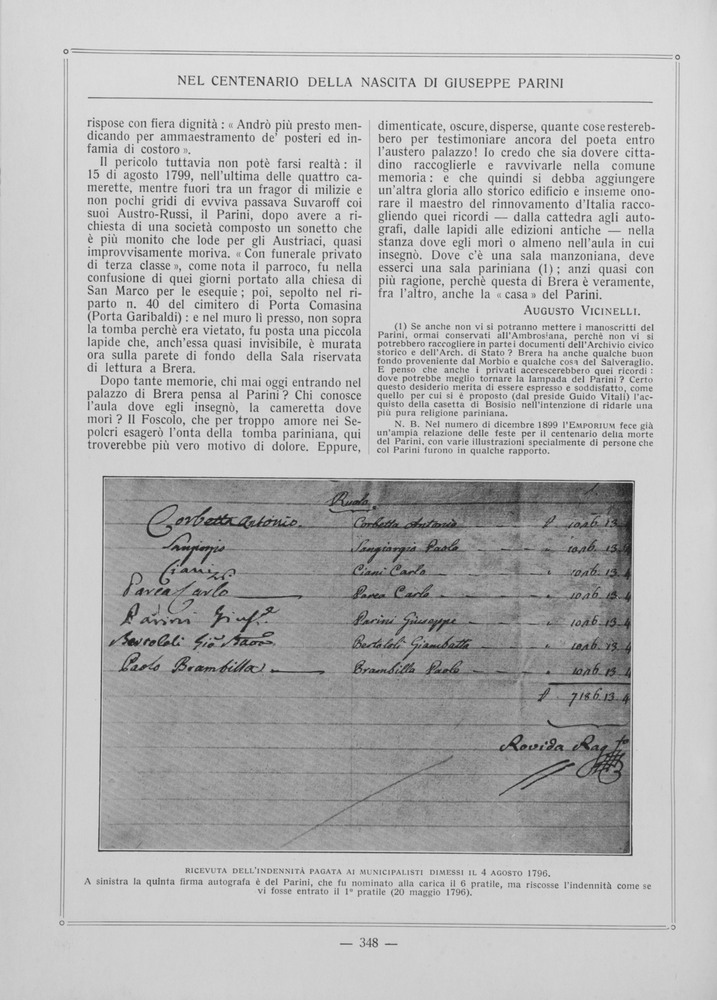 NEL CENTENARIO DELLA NASCITA DI GIUSEPPE PARINI
rispose con fiera dignità : « Andrò più presto men-
dicando per ammaestramento de' posteri ed in-
famia di costoro ».
Il pericolo tuttavia non potè farsi realtà : il
15 di agosto 1799, nell'ultima delle quattro ca-
merette, mentre fuori tra un fragor di milizie e
non pochi gridi di evviva passava Suvaroff coi
suoi Austro-Russi, il Parini, dopo avere a ri-
chiesta di una società composto un sonetto che
è più monito che lode per gli Austriaci, quasi
improvvisamente moriva. « Con funerale privato
di terza classe », come nota il parroco, fu nella
confusione di quei giorni portato alla chiesa di
San Marco per le esequie ; poi, sepolto nel ri-
parto n. 40 del cimitero di Porta Comasina
(Porta Garibaldi) : e nel muro lì presso, non sopra
la tomba perchè era vietato, fu posta una piccola
lapide che, anch'essa quasi invisibile, è murata
ora sulla parete di fondo della Sala riservata
di lettura a Brera.
Dopo tante memorie, chi mai oggi entrando nel
palazzo di Brera pensa al Parini ? Chi conosce
l'aula dove egli insegnò, la cameretta dove
morì ? Il Foscolo, che per troppo amore nei Se-
polcri esagerò l'onta della tomba pariniana, qui
troverebbe più vero motivo di dolore. Eppure,
dimenticate, oscure, disperse, quante cose resterеb-
bero per testimoniare ancora del poeta entro
l'austero palazzo! Io credo che sia dovere citta-
dino raccoglierle e ravvivarle nella comune
memoria : e che quindi si debba aggiungere
un'altra gloria allo storico edificio e insieme ono-
rare il maestro del rinnovamento d'Italia racco-
gliendo quei ricordi — dalla cattedra agli auto-
grafi, dalle lapidi alle edizioni antiche — nella
stanza dove egli morì o almeno nell'aula in cui
insegnò. Dove c'è una sala manzoniana, deve
esserci una sala pariniana (1) ; anzi quasi con
più ragione, perchè questa di Brera è veramente,
fra l'altro, anche la « casa » del Parini.
AUGUSTO VICINELLI.
(1) Se anche non vi si potranno mettere i manoscritti del
Parini, ormai conservati all'Ambrosiana, perchè non vi si
potrebbero raccogliere in parte i documenti dell'Archivio civico
storico e dell'Arch. di Stato ? Brera ha anche qualche buon
fondo proveniente dal Morbio e qualche cosa del Salveraglio.
E penso che anche i privati accrescerebbero quei ricordi :
dove potrebbe meglio tornare la lampada del Parini ? Certo
questo desiderio merita di essere espresso e soddisfatto, come
quello per cui si è proposto (dal preside Guido Vitali) l'ac-
quisto della casetta di Bosisio nell'intenzione di ridarle una
più pura religione pariniana.
N. B. Nel numero di dicembre 1899 l'EMPORIUM fece già
un'ampia relazione delle feste per il centenario della morte
del Parini, con varie illustrazioni specialmente di persone che
col Parini furono in qualche rapporto.
Ruolo
Corbetta Antonio. Corbetta Antonio 1026.13.4
Sangiorgio Sangiorgio Paolo 1026.13.4
Ciani Ciani Carlo 1026.13.4
Parea Carlo Parea Carlo 1026.13.4
Parini Parini Giuseppe 1026.13.4
Bertololi Gio Bertololi Giambatta 1026.13.4
Paolo Brambilla Brambilla Paolo 1026.13.4
7186.13.4
Rovida Rag.to
RICEVUTA DELL'INDENNITÀ PAGATA AI MUNICIPALISTI DIMESSI IL 4 AGOSTO 1796.
A sinistra la quinta firma autografa è del Parini, che fu nominato alla carica il 6 pratile, ma riscosse l'indennità come se
vi fosse entrato il 1° pratile (20 maggio 1796).
— 348 —